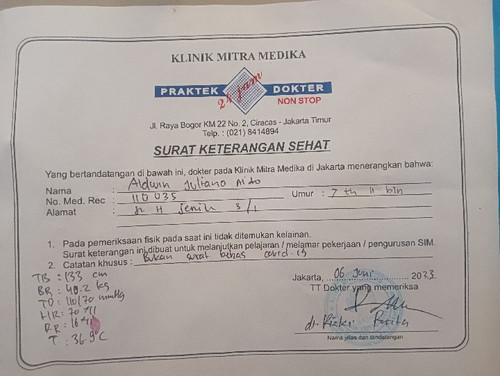 KLINIK MITRA MEDIKA
PRAKTEK DOKTER
24 jam
NON STOP
Jl. Raya Bogor KM 22 No. 2, Ciracas - Jakarta Timur
Telp. : (021) 8414894
SURAT KETERANGAN SEHAT
Yang bertandatangan di bawah ini, dokter pada Klinik Mitra Medika di Jakarta menerangkan bahwa:
Nama : Aldwin Juliano
No. Med. Rec : 110035 Umur : 7 th 11 bln
Alamat : Jl H Jenih 3/1
1. Pada pemeriksaan fisik pada saat ini tidak ditemukan kelainan.
Surat keterangan ini dibuat untuk melanjutkan pelajaran / melamar pekerjaan / pengurusan SIM.
2. Catatan khusus : Bukan surat bebas covid-19
TB : 133 cm
BB : 40.2 kg
TD : 110/70 mmHg
HR : 70 x/1
RR : 18 x/1
T : 36.9°C
Jakarta, 06 Juni 2023
TT Dokter yang memeriksa
Nama jelas dan tandatangan